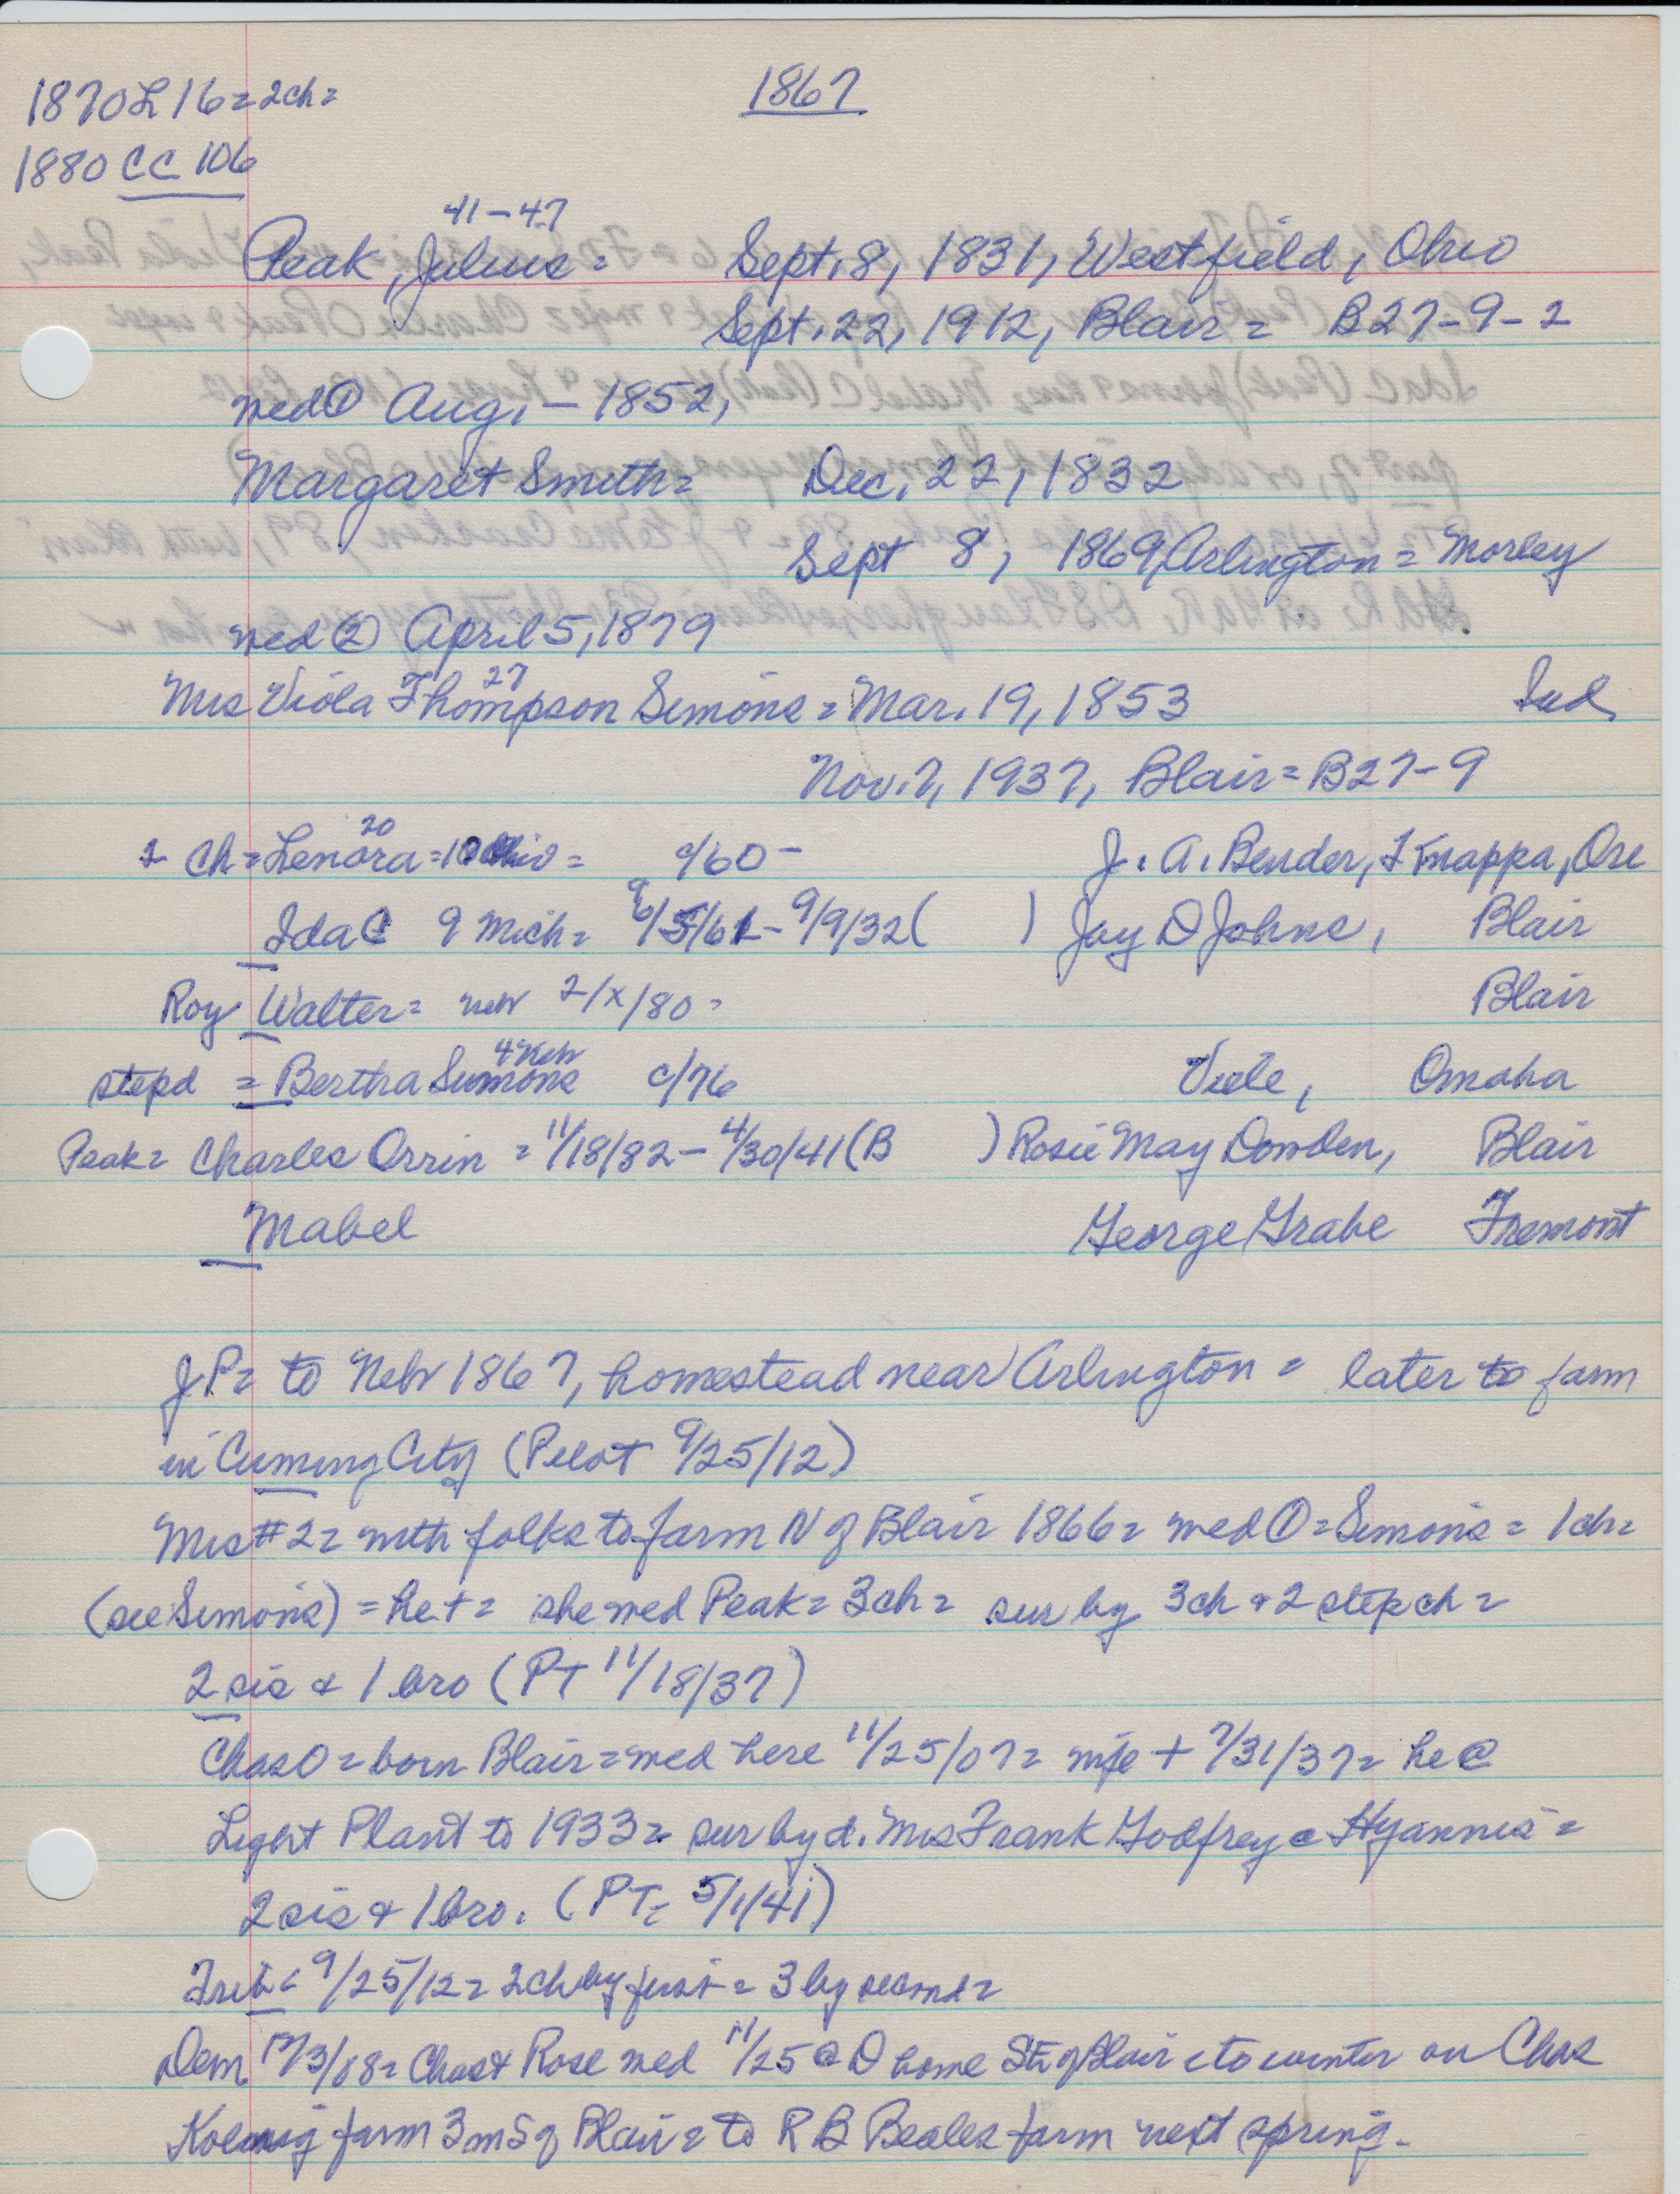 1870 L 16 = 2ch =
1867
1880 CC 106
41-47
Peak, Julius = Sept. 8, 1831, Westfield, Ohio
Sept. 22, 1912, Blair = B27-9-2
med ① Aug. - 1852,
Margaret Smith = Dec. 22, 1832
Sept 8, 1869, Arlington = Morley
med ② April 5, 1879
27
Mrs Viola Thompson Simons = Mar. 19, 1853 Ind
Nov. 7, 1937, Blair = B27-9
20
2 Ch = Lenora = 10 Ohio = c/60 - J. A. Bender, Knappa, Ore
Ida C 9 Mich = 9/5/61 - 9/9/32 ( ) Jay D Johns, Blair
Roy Walter = neb 2/x/80 = Blair
4 Neb
stepd = Bertha Simons c/76 Viele, Omaha
Peak = Charles Orrin = 11/18/82 - 4/30/41 (B ) Rosie May Dowden, Blair
Mabel George Grabe Fremont
J P = to Neb 1867, homestead near Arlington = later to farm
in Cuming City (Pilot 9/25/12)
Mrs #2 = with folks to farm N of Blair 1866 = med ① = Simons = 1 ch =
(see Simons) = he + = she med Peak = 3ch = sur by 3ch & 2 step ch =
2 sis & 1 bro (PT 11/18/37)
Chas O = born Blair = med here 11/25/07 = wife + 7/31/37 = he @
Light Plant to 1933 = sur by d. Mrs Frank Godfrey @ Hyannis =
2 sis & 1 bro. (PT = 5/1/41)
Trib = 9/25/12 = 2 ch by first = 3 by second =
Dem 12/3/08 = Chas & Rose med 11/25 @ D home SE of Blair = to winter on Chas
Koenig farm 3 m S of Blair = to R B Beales farm next spring.